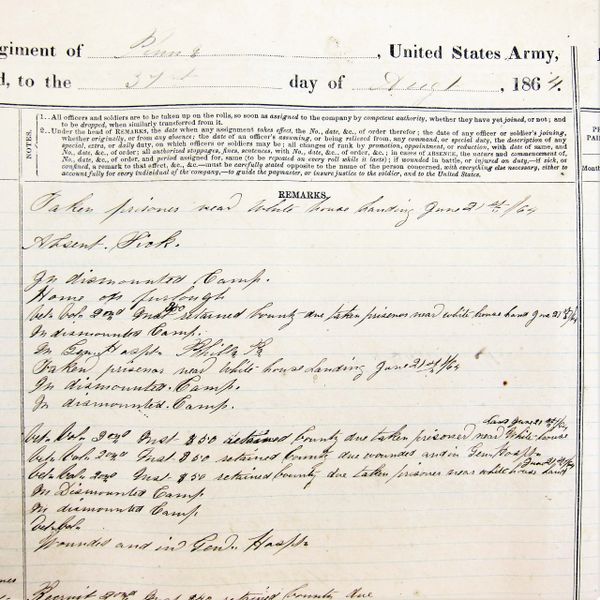 giment of Penna , United States Army,
d, to the 31st day of Augt , 1864.
NOTES.
1..All officers and soldiers are to be taken up on the rolls, so soon as assigned to the company by competent authority, whether they have yet joined, or not; and
to be dropped, when similarly transferred from it.
2..Under the head of REMARKS, the date when any assignment takes effect, the No., date, &c., of order therefor; the date of any officer's or soldier's joining,
whether originally, or from any absence; the date of an officer's assuming, or being relieved from, any command, or special duty, the description of any
special, extra, or daily duty, on which officers or soldiers may be; all changes of rank by promotion, appointment, or reduction, with date of same, and
No., date, &c., of order; all authorized stoppages, fines, sentences, with No., date, &c., of order, &c.; in cases of ABSENCE, the nature and commencement of,
No., date, &c., of order, and period assigned for, same (to be reported on every roll while it lasts); if wounded in battle, or injured on duty,—if sick, or
confined, a remark to that effect, &c., &c.—must be carefully stated opposite the name of the person concerned, with everything else necessary, either to
account fully for every individual of the company,—to guide the paymaster, or insure justice to the soldier, and to the United States.
PAI
Month
REMARKS.
Taken prisoner near White house Landing June 21st/64
Absent. Sick.
In dismounted Camp.
Home on furlough
Vet. Vol. 2nd Inst $50 retained bounty due taken prisoner near white house Land June 21st/64
In dismounted Camp.
In Genl Hospt. Philla Pa
Taken prisoner near White house Landing June 21st/64
In dismounted Camp.
In dismounted Camp.
Land June 21st/64
Vet. Vol. 2nd Inst $50 retained bounty due taken prisoner near White house
Vet. Vol. 2nd Inst $50 retained bounty due wounded and in Genl Hospt.
June 21st/64
Vet. Vol. 2nd Inst $50 retained bounty due taken prisoner near white house Land
In Dismounted Camp
In dismounted Camp
Vet. Vol.
Wounded and in Genl. Hospt.
Recruit 2nd Inst retained bounty due